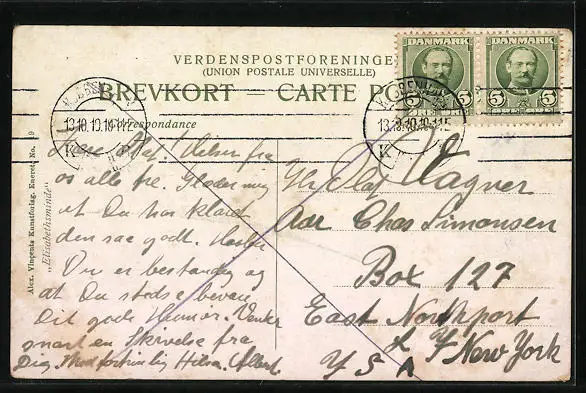 VERDENSPOSTFORENINGEN
(UNION POSTALE UNIVERSELLE)
BREVKORT — CARTE PO
DANMARK
DANMARK
5 5
5 5
ØRE
KJØBENHAVN
13.10.10.
K
KJØBENHAVN
13.10.10.
K
Correspondance
Kære Olaf. Hilsen fra
os alle tre. Glæder mig
at Du har klaret
den saa godt. Haaber
Du er bestandig og
at Du stadig bevarer
Dit gode Humør. Venter
snart en Skrivelse fra
Dig. Med fortrinlig Hilsen. Albert
Hr. Olaf Wagner
Adr Chas Simonsen
Box 127
East Northport
L. I. New York
U S A
Alex. Vincents Kunstforlag. Eneret. No. 9
"Elisabethsminde"